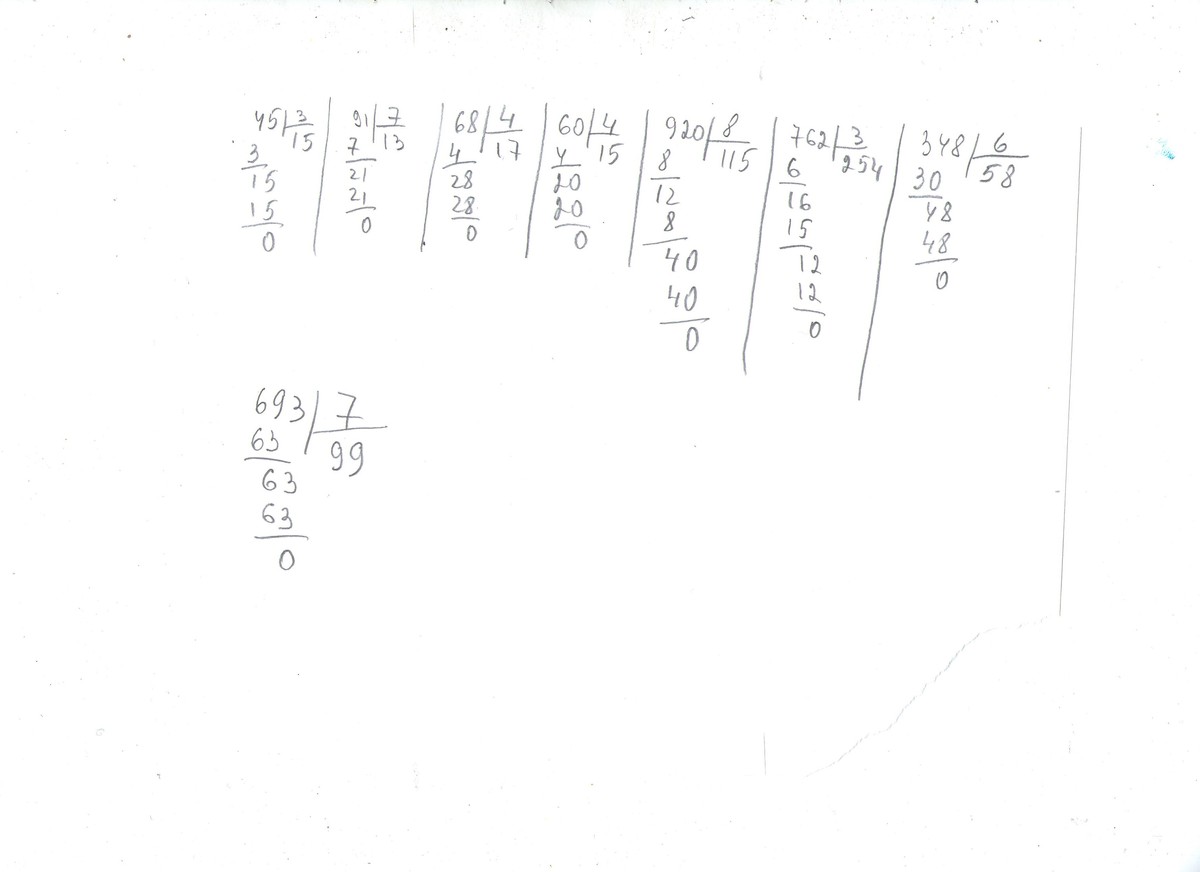 45 3
15
3
15
15
0
91 7
13
7
21
21
0
68 4
17
4
28
28
0
60 4
15
4
20
20
0
920 8
115
8
12
8
40
40
0
762 3
254
6
16
15
12
12
0
348 6
58
30
48
48
0
693 7
99
63
63
63
0